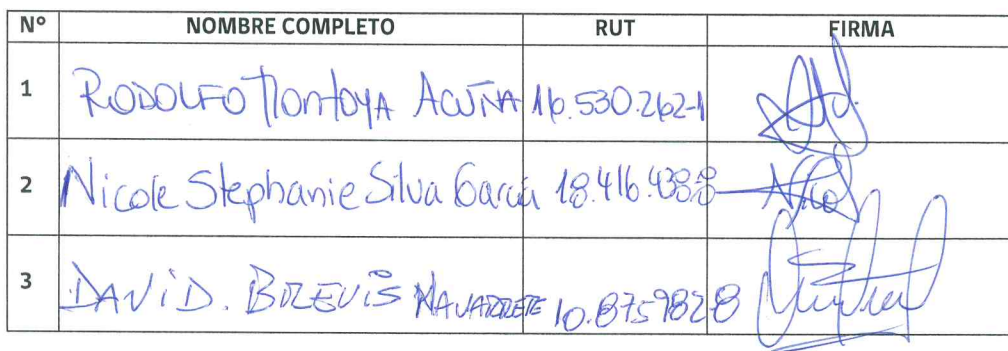 N° NOMBRE COMPLETO RUT FIRMA
1 RODOLFO Montoya ACUÑA 16.530.262-1
2 Nicole Stephanie Silva Garcia 18.416.438-8
3 DAViD. BREVIS NAVARRETE 10.875982-8